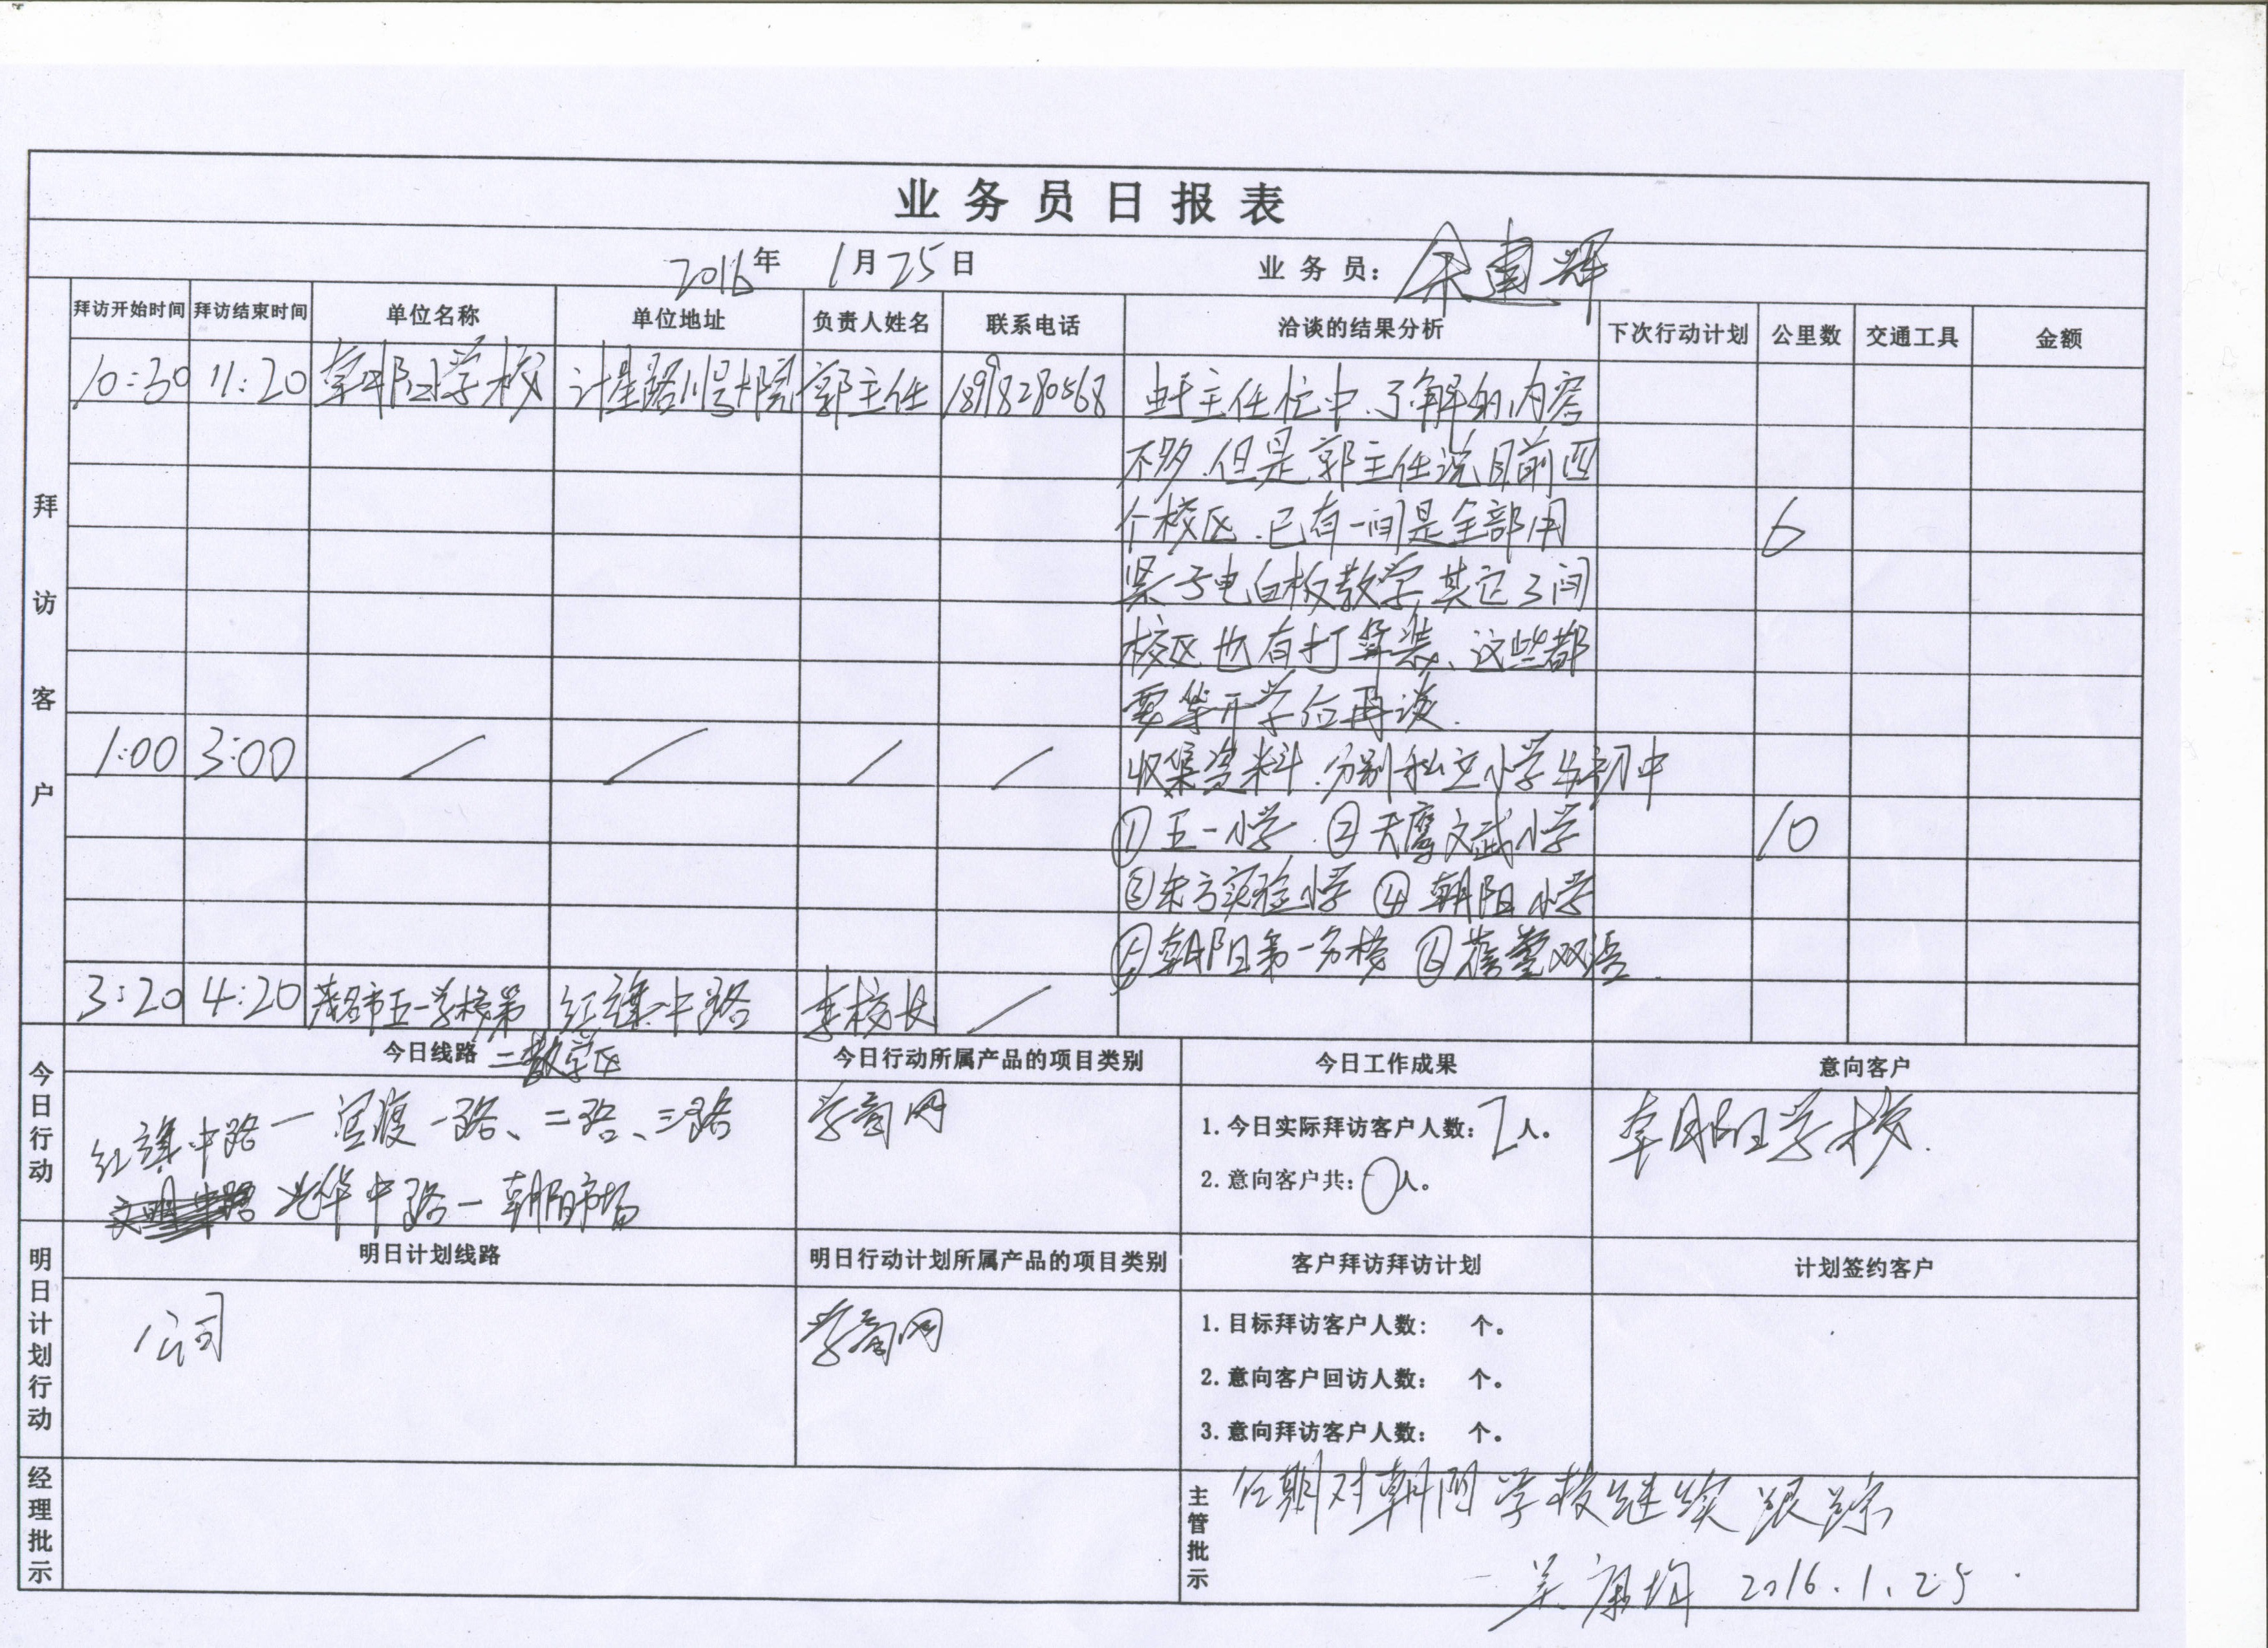 业务员日报表
2016年 1月25日 业务员: 余建辉
拜访开始时间 拜访结束时间 单位名称 单位地址 负责人姓名 联系电话 洽谈的结果分析 下次行动计划 公里数 交通工具 金额
拜访客户
10:30 11:20 朝阳学校 计星路11号大院 郭主任 由于主任忙中、了解的内容
不多.但是郭主任说目前四
个校区.已有一间是全部用 6
电白板教学,其它3间
校区也有打算装、这些都
要等开学后再谈.
1:00 3:00 / / / / 收集资料.分别私立小学与初中
①五一小学.②天鹰文武小学 10
③东方实验小学 ④朝阳小学
⑤朝阳第一分校 ⑥双语.
3:20 4:20 茂名市五一学校第 红旗中路 李校长 /
二教学区
今日行动
今日线路 今日行动所属产品的项目类别 今日工作成果 意向客户
红旗中路一官渡一路、二路、三路 学习网 1.今日实际拜访客户人数: 2人。 朝阳学校.
光华中路一朝阳市场 2.意向客户共: 0人。
明日计划行动
明日计划线路 明日行动计划所属产品的项目类别 客户拜访拜访计划 计划签约客户
公司 1.目标拜访客户人数: 个。
2.意向客户回访人数: 个。
3.意向拜访客户人数: 个。
经理批示 主管批示
后期对朝阳学校继续跟踪
2016.1.25.